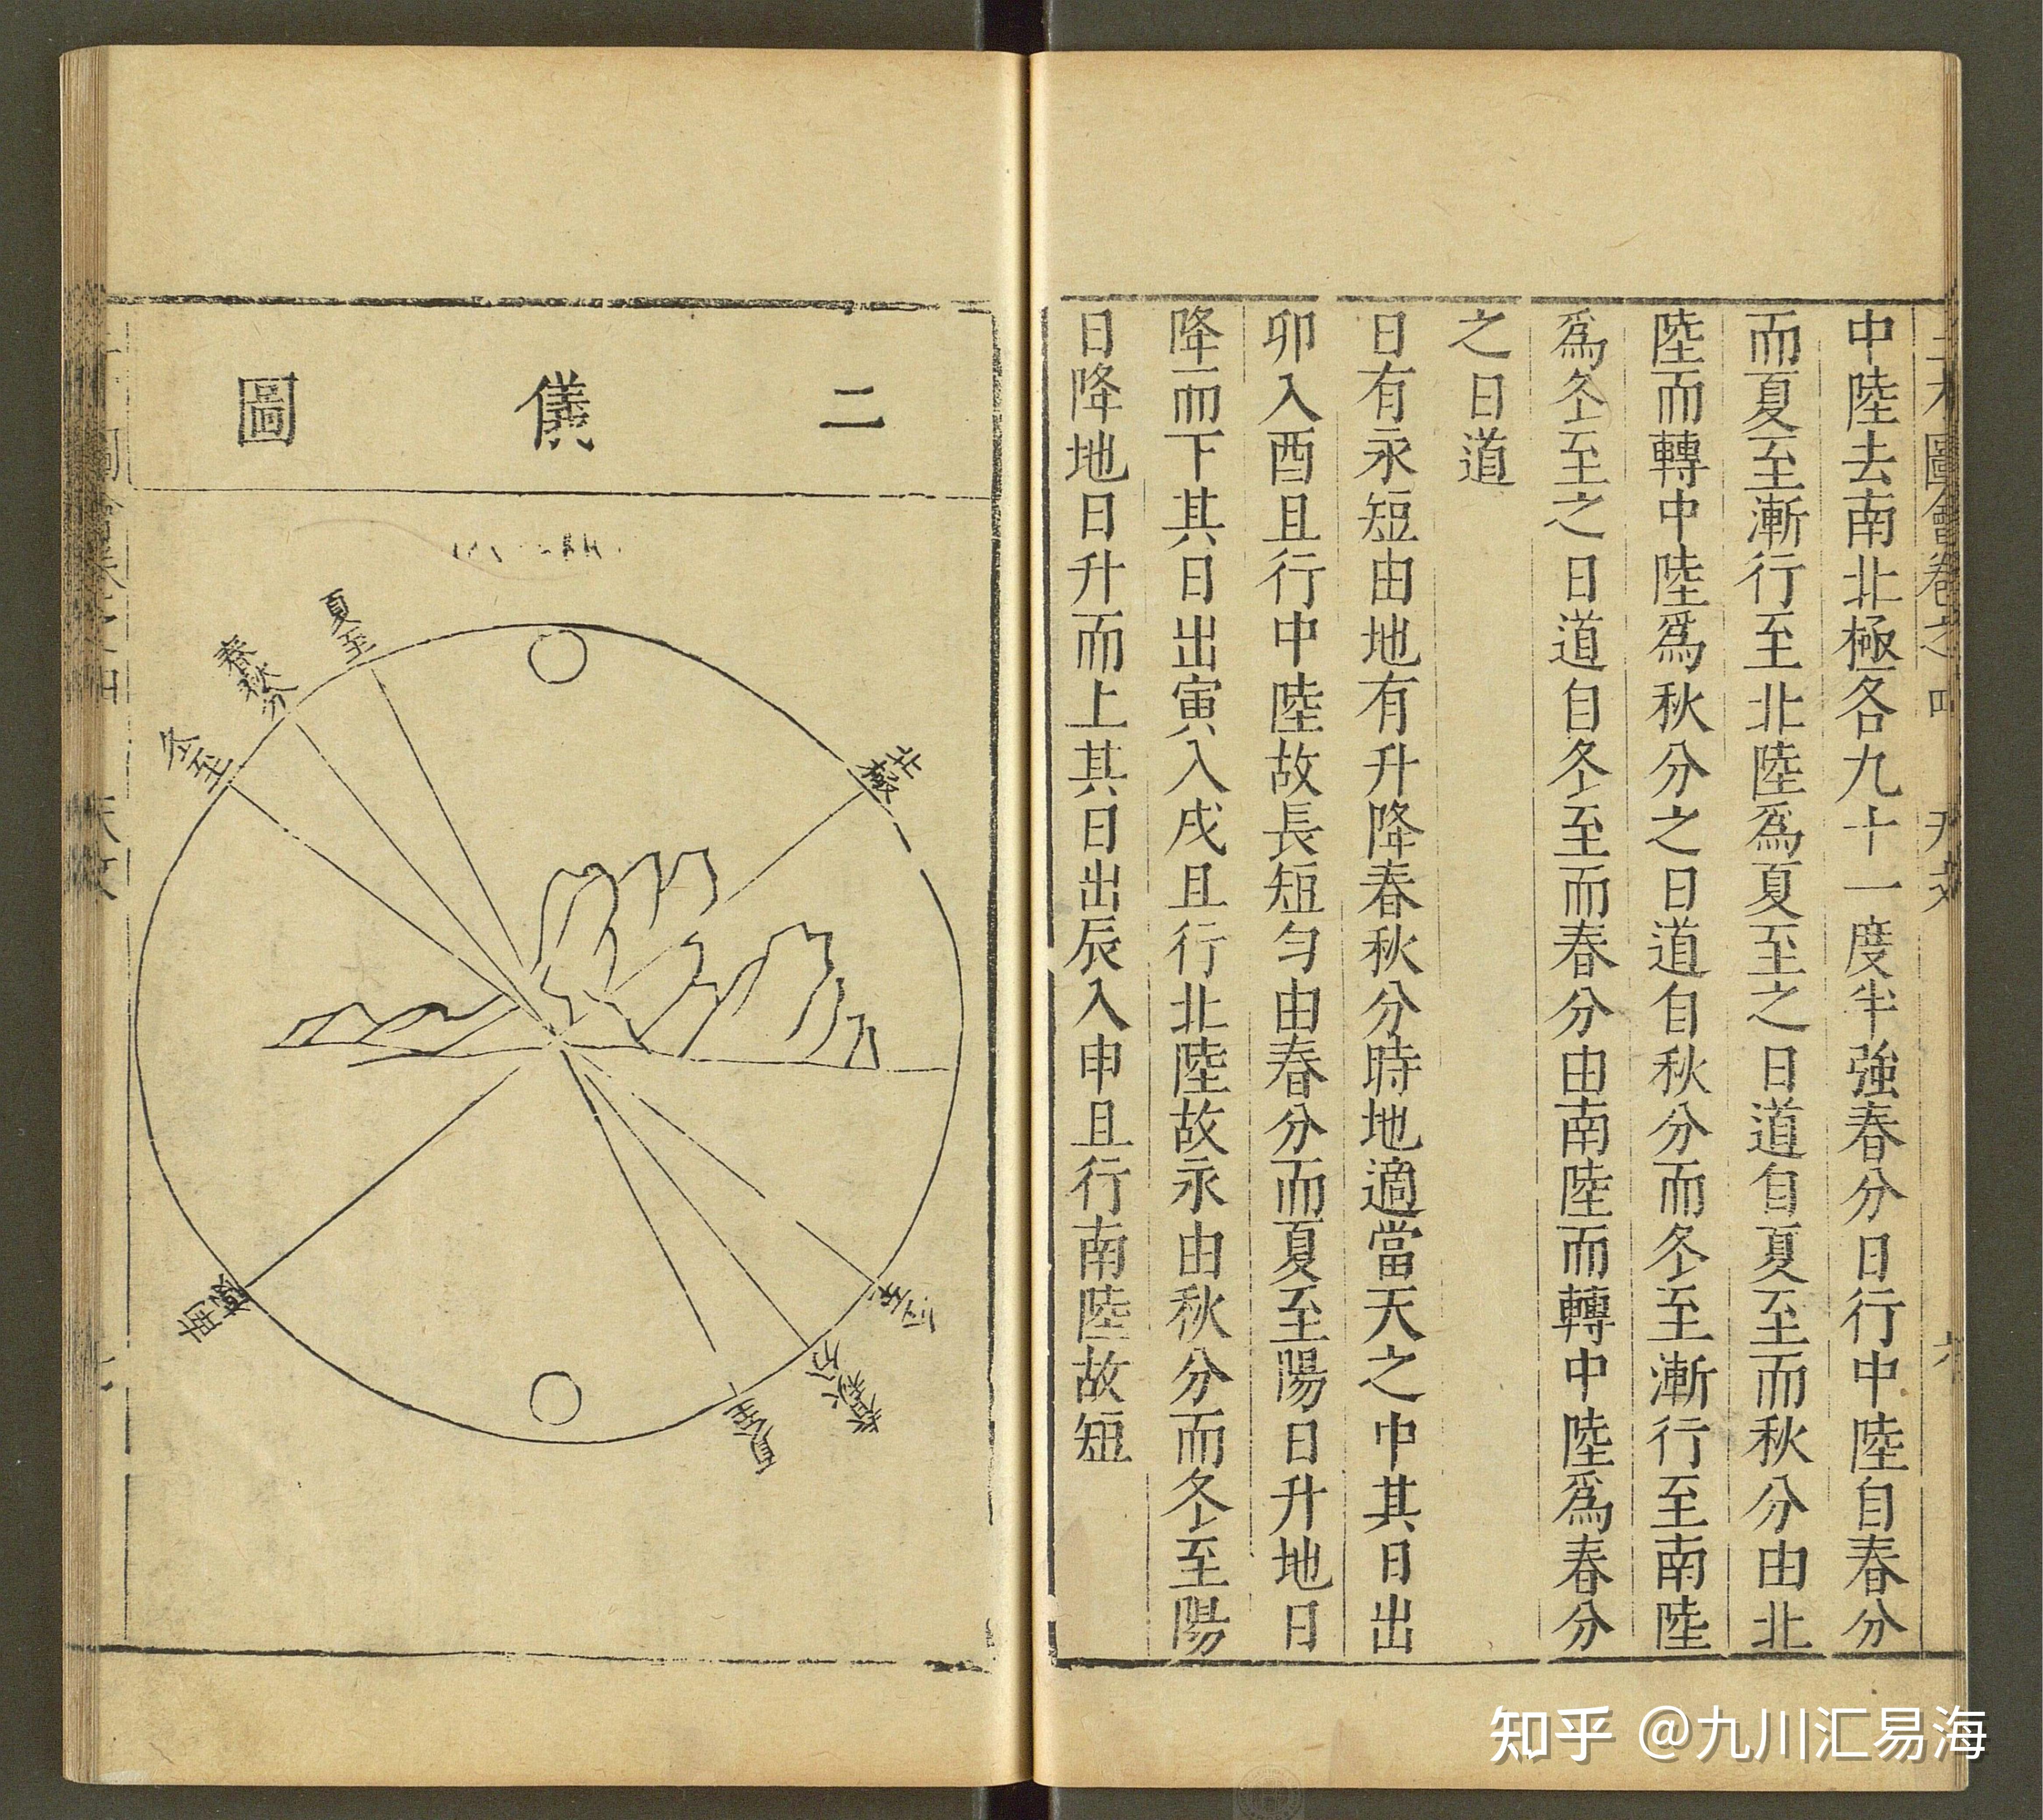 三才圖會卷之四 天文 六
中陸去南北極各九十一度半強春分日行中陸自春分
而夏至漸行至北陸為夏至之日道自夏至而秋分由北
陸而轉中陸為秋分之日道自秋分而冬至漸行至南陸
為冬至之日道自冬至而春分由南陸而轉中陸為春分
之日道
日有永短由地有升降春秋分時地適當天之中其日出
卯入酉且行中陸故長短勻由春分而夏至陽日升地日
降而下其日出寅入戌且行北陸故永由秋分而冬至陽
日降地日升而上其日出辰入申且行南陸故短
二儀圖
夏至
春秋分
冬至
北極
南極
冬至
春秋分
夏至
天文
七
知乎 @九川汇易海